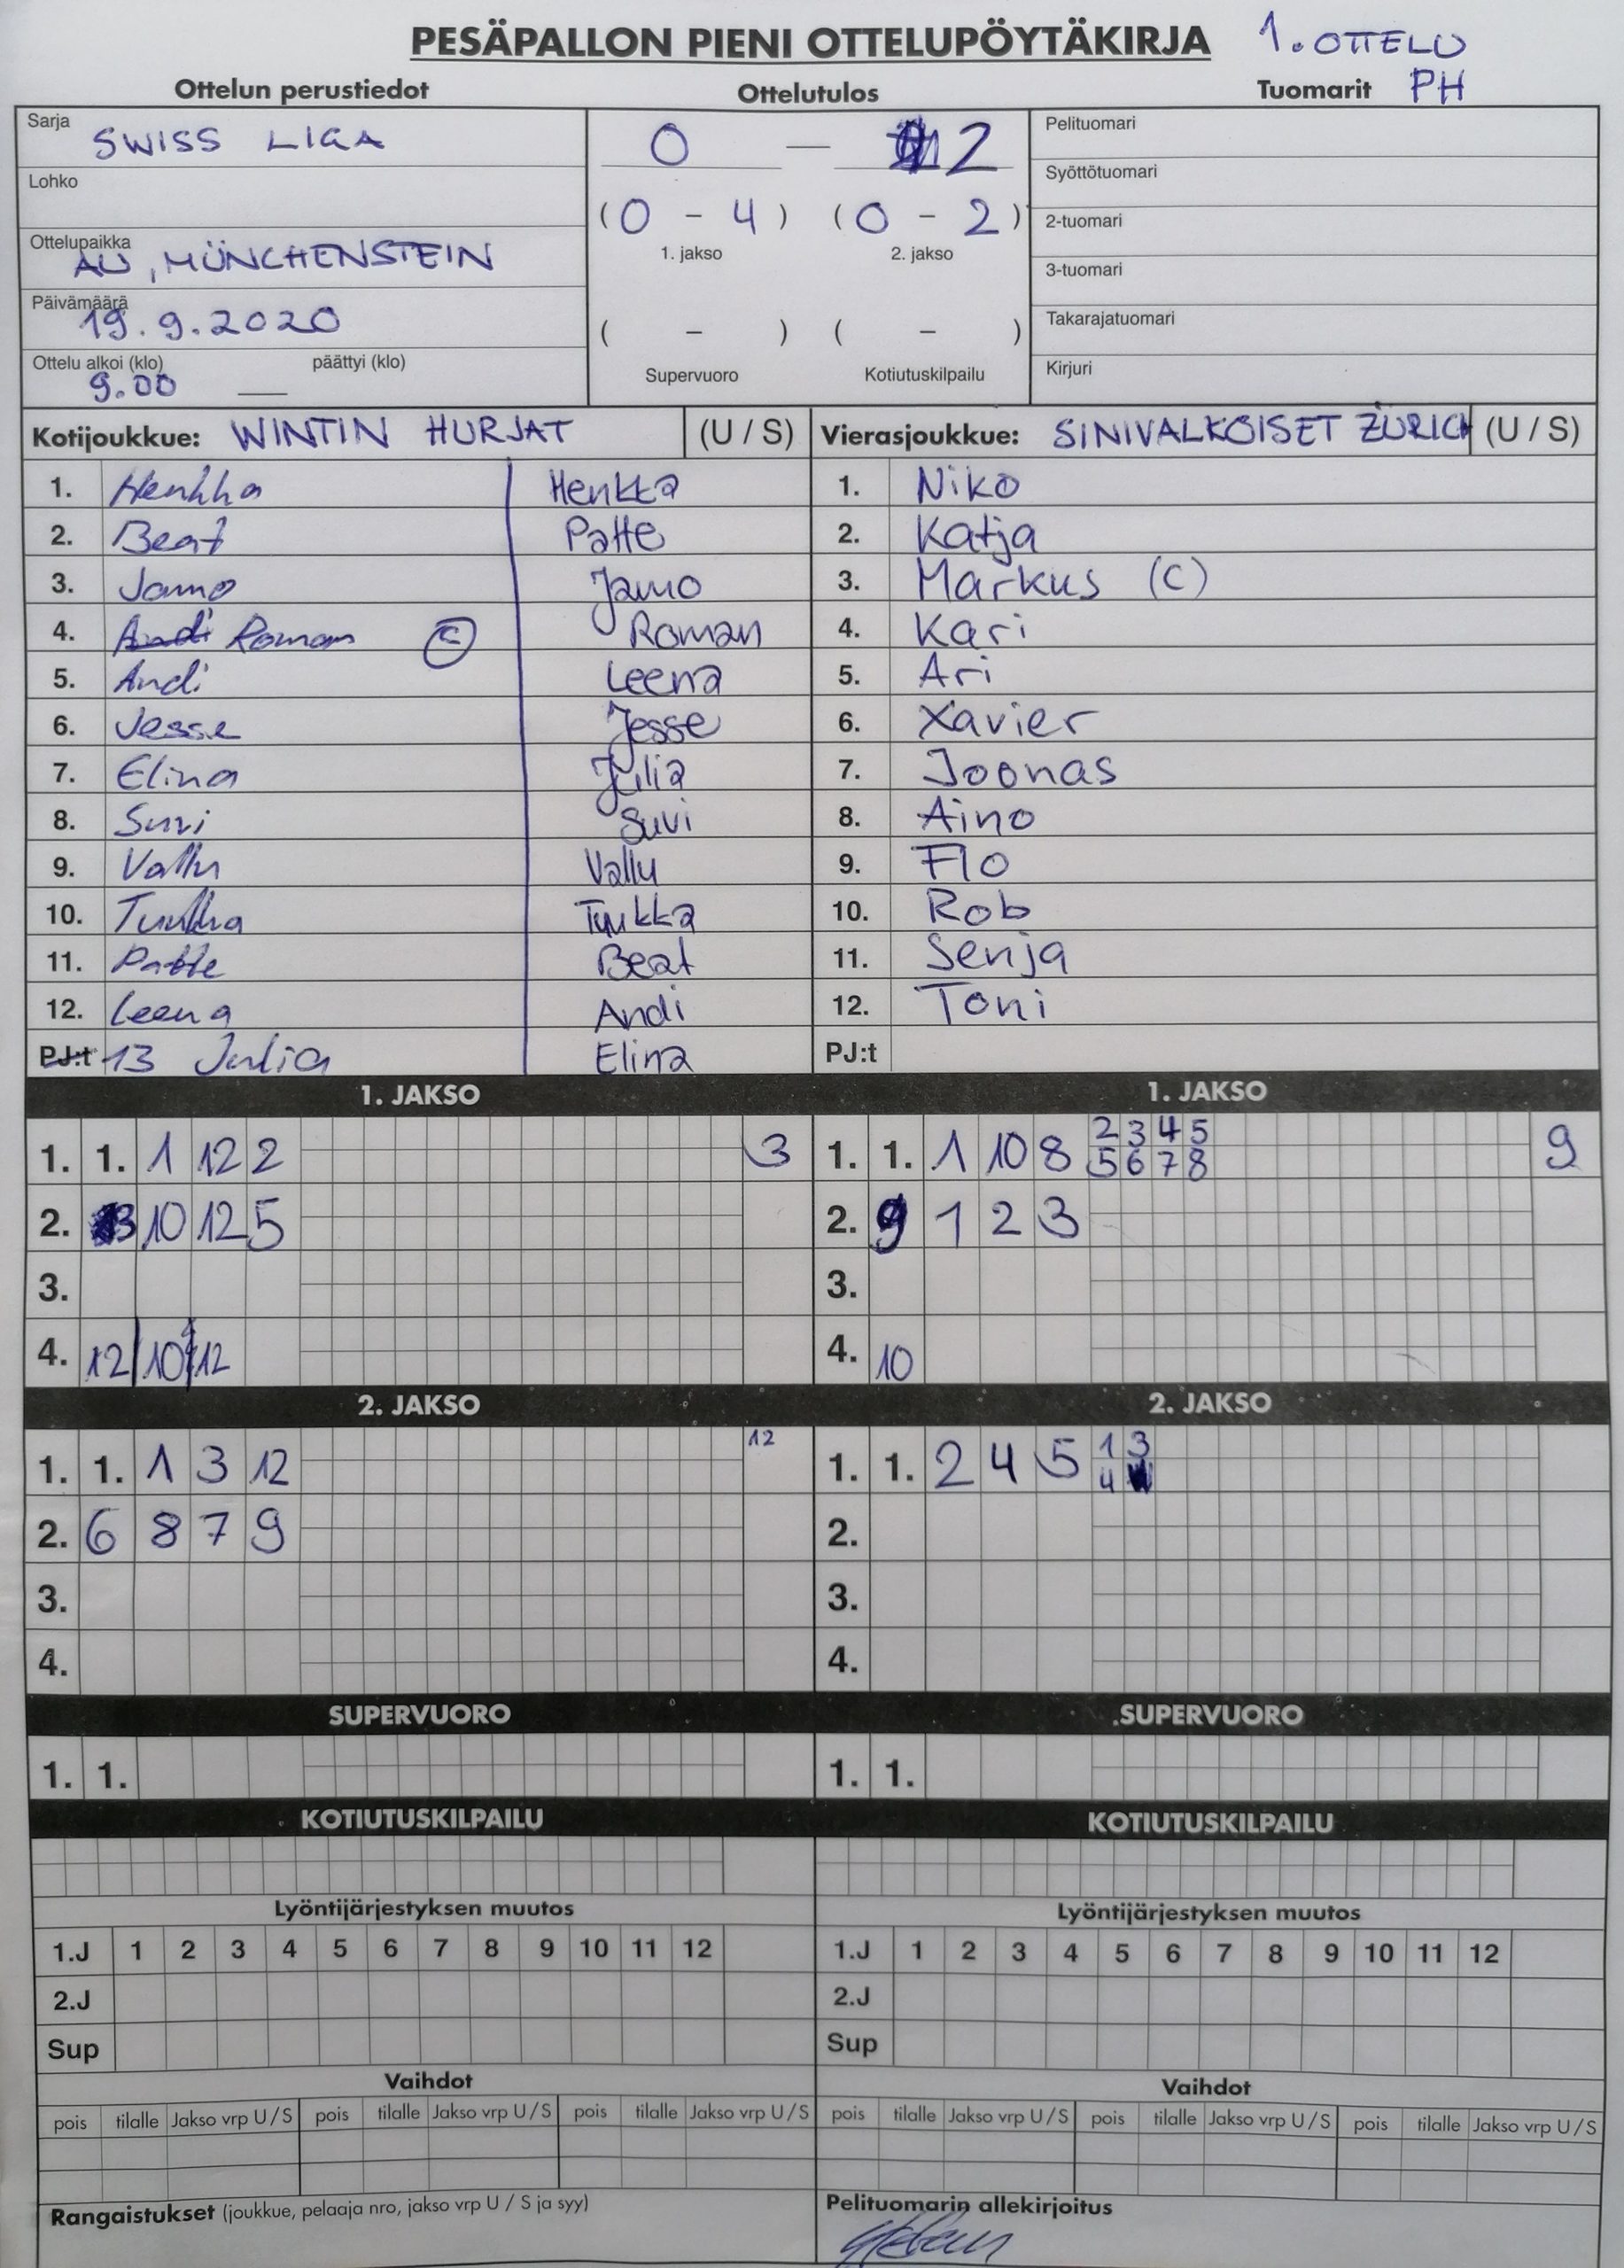 PESÄPALLON PIENI OTTELUPÖYTÄKIRJA 1. OTTELU
Ottelun perustiedot Ottelutulos Tuomarit PH
Sarja SWISS LIGA
Lohko
Ottelupaikka AU, MÜNCHENSTEIN
Päivämäärä 19.9.2020
Ottelu alkoi (klo) 9.00 — päättyi (klo)
0 — 2
(0 - 4) (0 - 2)
1. jakso 2. jakso
( - ) ( - )
Supervuoro Kotiutuskilpailu
Pelituomari
Syöttötuomari
2-tuomari
3-tuomari
Takarajatuomari
Kirjuri
Kotijoukkue: WINTIN HURJAT (U / S) Vierasjoukkue: SINIVALKOISET ZÜRICH (U / S)
1. Henkka Henkka 1. Niko
2. Beat Patte 2. Katja
3. Jamo Jamo 3. Markus (C)
4. Andi Roman C Roman 4. Kari
5. Andi Leena 5. Ari
6. Jesse Jesse 6. Xavier
7. Elina Julia 7. Joonas
8. Suvi Suvi 8. Aino
9. Vallu Vallu 9. Flo
10. Tuukka Tuukka 10. Rob
11. Patte Beat 11. Senja
12. Leena Andi 12. Toni
PJ:t 13 Julia Elina PJ:t
1. JAKSO 1. JAKSO
1. 1. 1 12 2 3 1. 1. 1 10 8 2 3 4 5 9
5 6 7 8
2. 13 10 12 5 2. 9 1 2 3
3. 3.
4. 12/10/12 4. 10
2. JAKSO 2. JAKSO
1. 1. 1 3 12 12 1. 1. 2 4 5 1 3
4
2. 6 8 7 9 2.
3. 3.
4. 4.
SUPERVUORO SUPERVUORO
1. 1. 1. 1.
KOTIUTUSKILPAILU KOTIUTUSKILPAILU
Lyöntijärjestyksen muutos Lyöntijärjestyksen muutos
1.J 1 2 3 4 5 6 7 8 9 10 11 12 1.J 1 2 3 4 5 6 7 8 9 10 11 12
2.J 2.J
Sup Sup
Vaihdot Vaihdot
pois tilalle Jakso vrp U / S pois tilalle Jakso vrp U / S pois tilalle Jakso vrp U / S pois tilalle Jakso vrp U / S pois tilalle Jakso vrp U / S pois tilalle Jakso vrp U / S
Rangaistukset (joukkue, pelaaja nro, jakso vrp U / S ja syy) Pelituomarin allekirjoitus